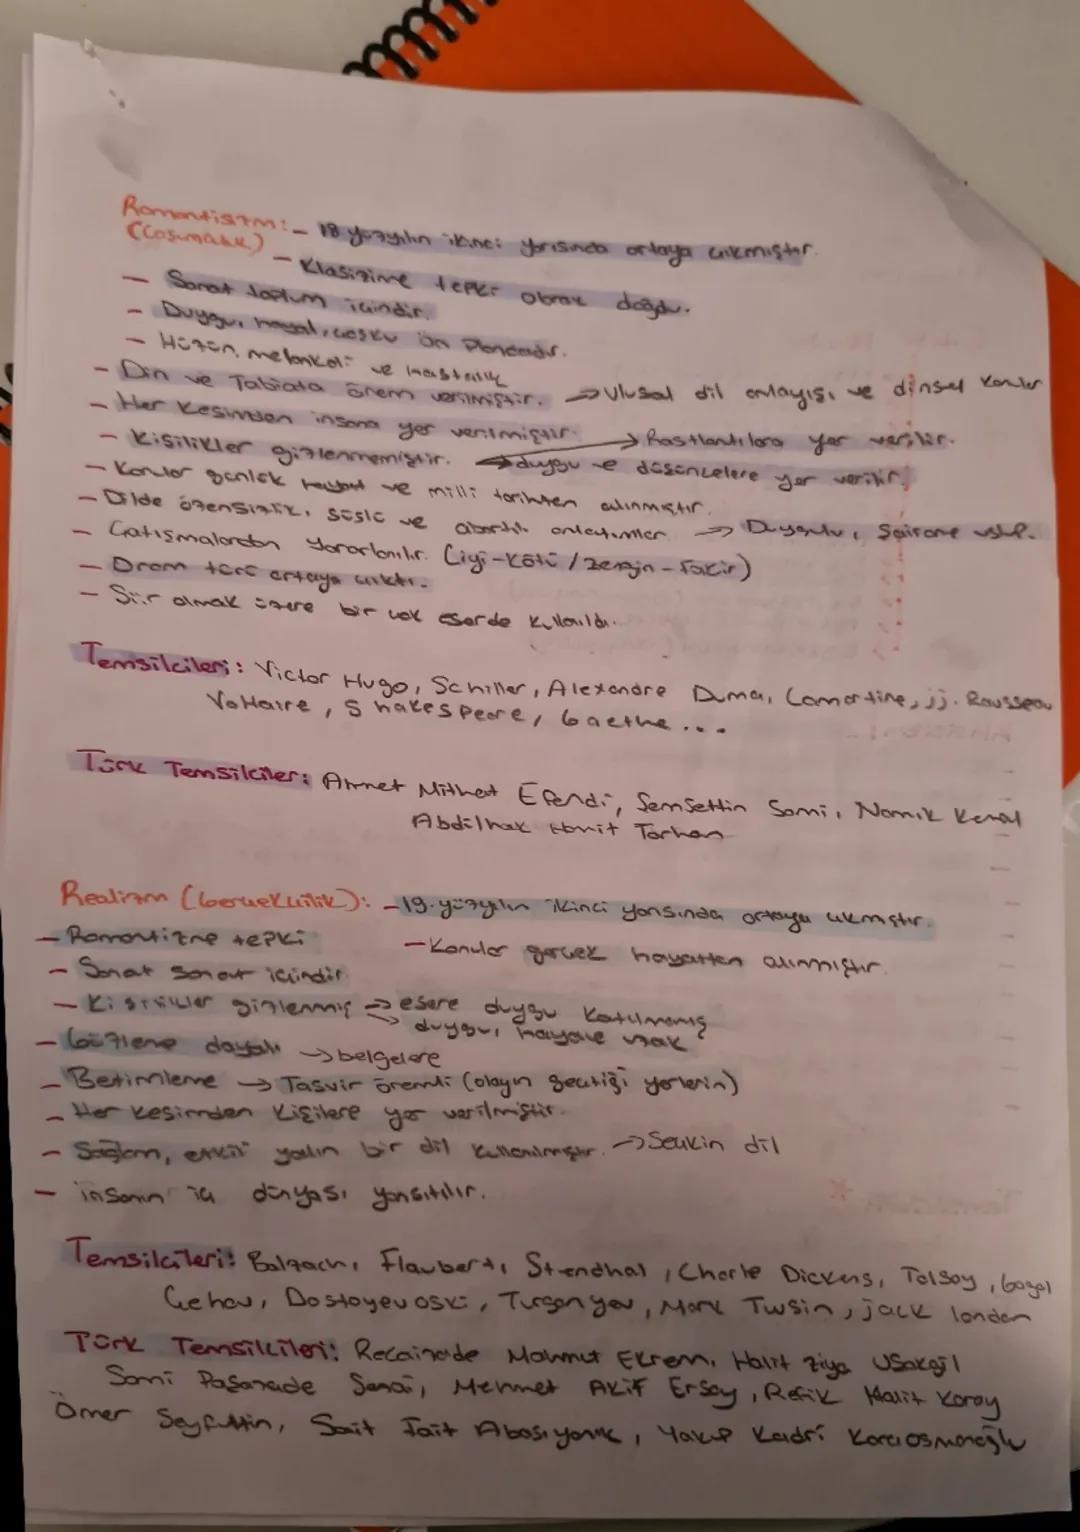 Romantizm: - 18. yüzyılın ikinci yarısında ortaya çıkmıştır.
(Coşumculuk)
- Klasizime tepki olarak doğdu.
- Sanat toplum içindir.
- Duygu, hayal, coşku ön plandadır.
- Hüzün, melankoli ve
- Din ve Tabiata önem verilmiştir. → Ulusal dil anlayışı ve dinsel konular
- Her kesimden insana yer verilmiştir. → Rastlantılara yer verilir.
- Kişilikler gizlenmemiştir. → duygu ve düşüncelere yer verilir.
- Konular günlük hayat ve milli tarihten alınmıştır.
- Dilde özensizlik, süslü ve abartılı anlatımlar → Duygulu, Şairane üslup.
- Çatışmalardan yararlanılır. (iyi-kötü / zengin-fakir)
- Dram türü ortaya çıktı.
- Şiir olmak üzere bir çok eserde kullanıldı.
Temsilcileri: Victor Hugo, Schiller, Alexandre Duma, Lamartine, jj. Rousseau
Voltaire, Shakespeare, Goethe ...
Türk Temsilciler: Ahmet Mithat Efendi, Şemsettin Sami, Namık Kemal
Abdülhak Hamit Tarhan
Realizm (Gerçekçilik): - 19. yüzyılın ikinci yarısında ortaya çıkmıştır.
- Romantizme tepki - Konular gerçek hayattan alınmıştır.
- Sanat sanat içindir
- Kişilikler gizlenmiş → esere duygu katılmamış
→ duygu, hayale uzak
- Gözleme dayalı → belgelere
- Betimleme → Tasvir önemli (olayın geçtiği yerlerin)
- Her kesimden kişilere yer verilmiştir.
- Sağlam, etkili yalın bir dil kullanılmıştır. → Seçkin dil
- insanın iç dünyası yansıtılır.
Temsilcileri: Balzach, Flaubert, Stendhal, Charle Dickens, Tolsoy, Gogol
Çehov, Dostoyevoski, Turgenyev, Mark Twain, jack london
Türk Temsilcileri: Recaizade Mahmut Ekrem, Halit Ziya Uşakgil
Sami Paşazade Sezai, Mehmet Akif Ersoy, Refik Halit Karay
Ömer Seyfettin, Sait Fait Abasıyanık, Yakup Kadri Karaosmanoğlu